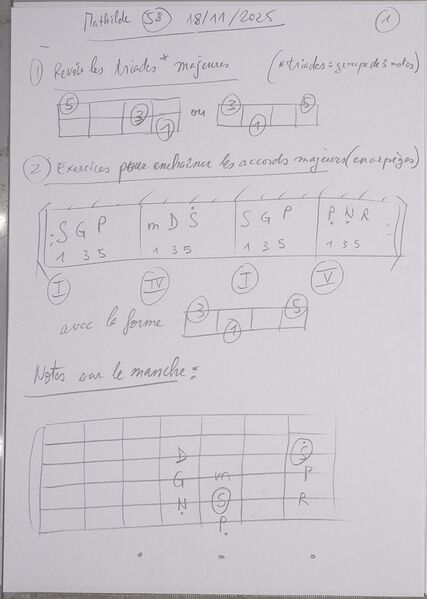 Mathilde 58 18/11/2025 1
1 Revoir les triades* majeures (*triades = groupe de 3 notes)
5 3 1 ou 3 1 5
2 Exercices pour entraîner les accords majeurs (en arpèges)
S G P m D Ṡ S G P P Ṇ R
1 3 5 1 3 5 1 3 5 1 3 5
I IV I V
avec la forme 3 1 5
Notes sur le manche :
D Ṡ
G m P
Ṇ S R
Ṇ